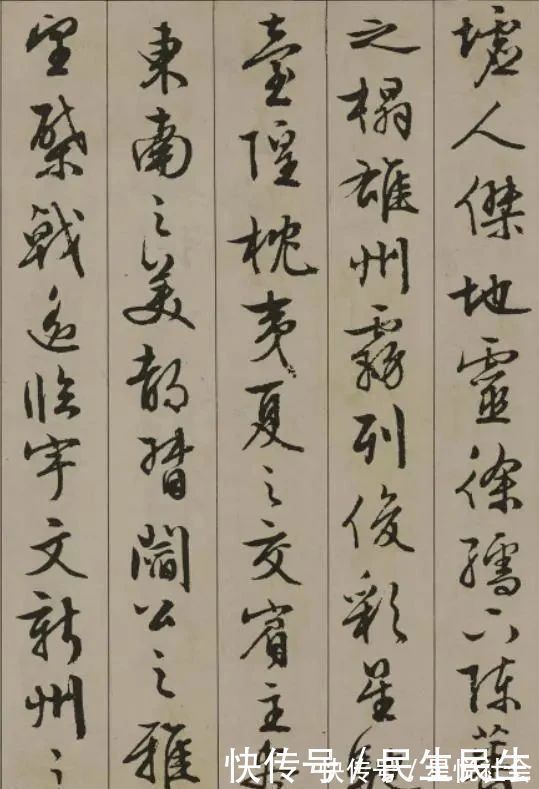 墟人傑地靈徐孺下陳蕃
之榻雄州霧列俊彩星
臺隍枕夷夏之交賓主
東南之美都督閻公之雅
望棨戟遥臨宇文新州之
快传号/民生民生
快传号/